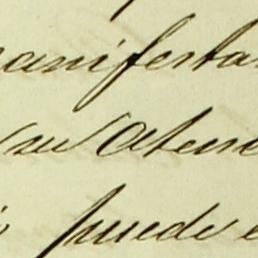 manifesta
su aten
puede